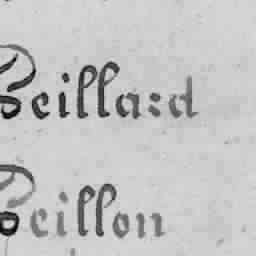 Seillard
Seillon